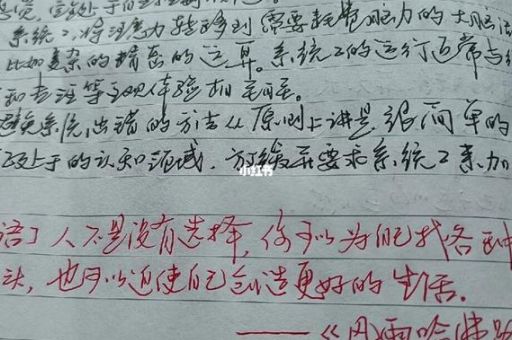 系统2.将注意力转移到需要耗费脑力的大脑活
比如复杂的精密的运算。系统2的运行通常与
和专注等主观体验相关联。
避免系统出错的方法从原则上讲是很简单的
处于的认知领域,放缓并要求系统2来加
小红书
语」人不是没有选择,你可以为自己找各种
也可以迫使自己创造更好的生活。
——《风雨哈佛路